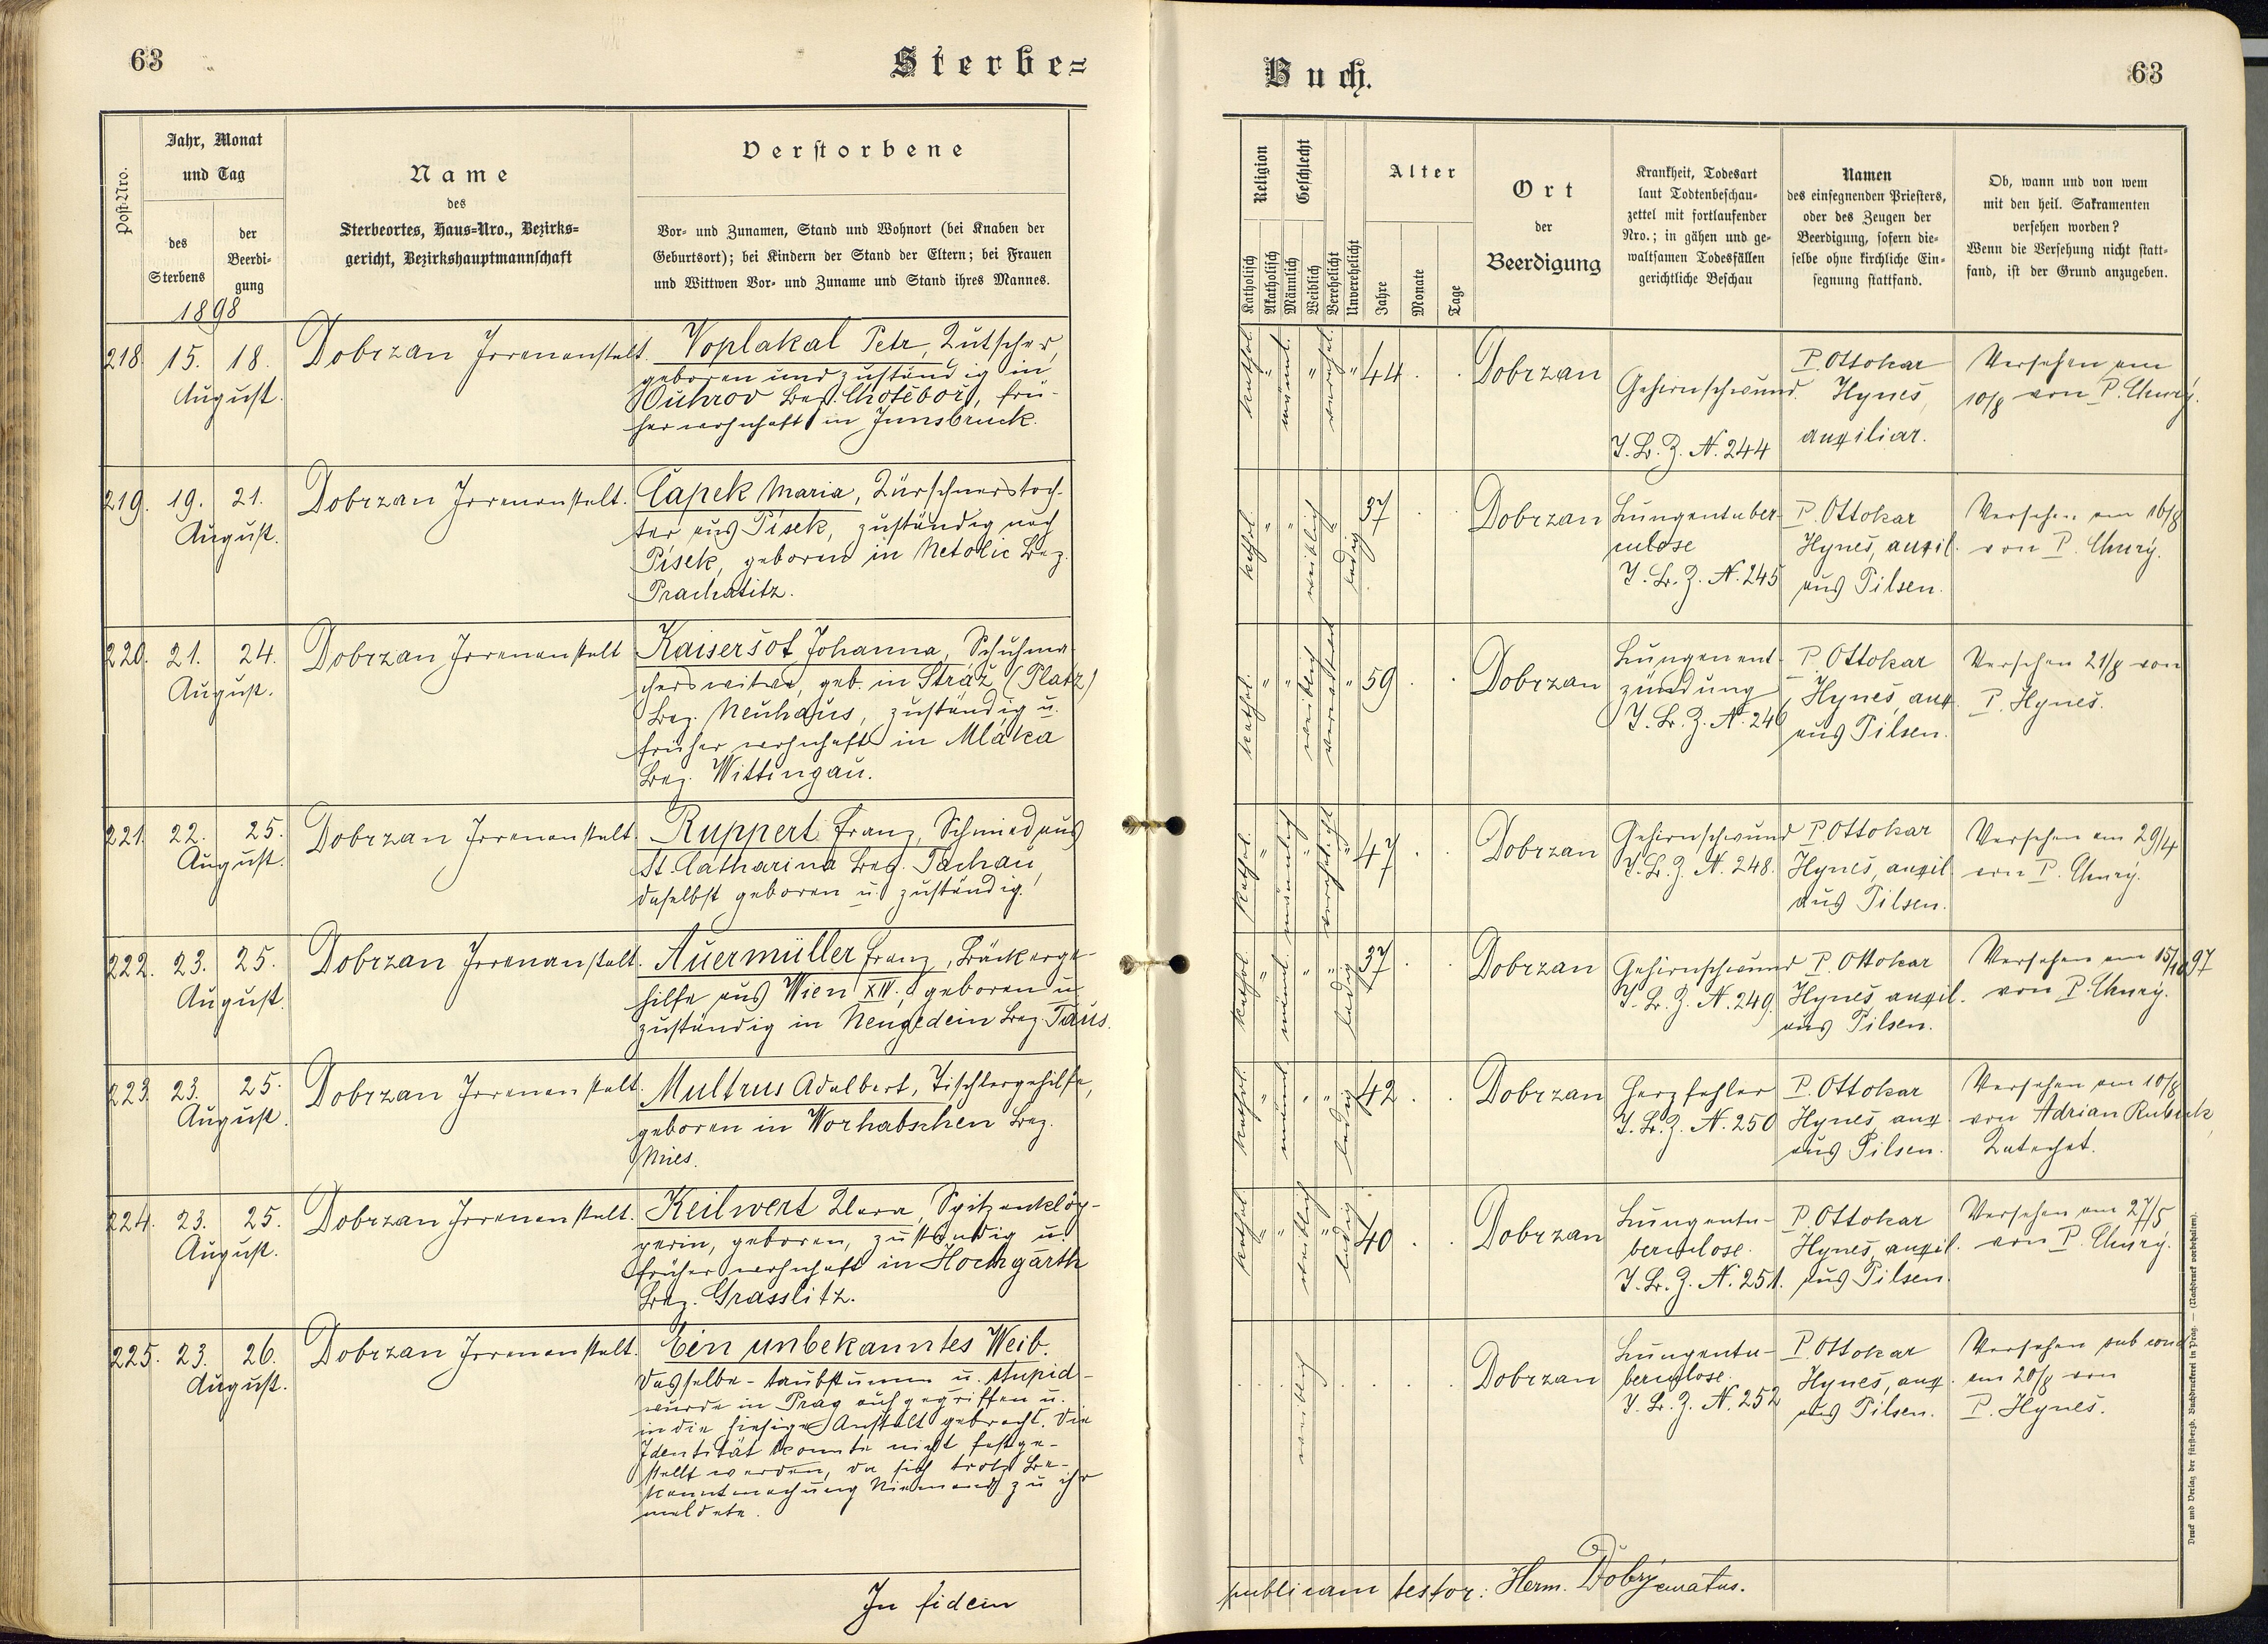 63
Sterbe=
Post-Nro.
Jahr, Monat
und Tag
des
Sterbens
der
Beerdi-
gung
1898
Name
des
Sterbeortes, Haus=Nro., Bezirks=
gericht, Bezirkshauptmannschaft
Verstorbene
Vor- und Zunamen, Stand und Wohnort (bei Knaben der
Geburtsort); bei Kindern der Stand der Eltern; bei Frauen
und Wittwen Vor- und Zuname und Stand ihres Mannes.
218. 15. 18. Dobrzan Irrenanstalt. Voplakal Petr, Kutscher,
August. geboren und zuständig in
Wuhrov Bez. Chotěboř, frü-
her wohnhaft in Innsbruck.
219. 19. 21. Dobrzan Irrenanstalt. Čapek Maria, Kürschnerstoch-
August. ter aus Písek, zuständig nach
Písek, geboren in Netolic Bez.
Prachatitz.
220. 21. 24. Dobrzan Irrenanstalt Kaiseršot Johanna, Schuhma-
August. cherswitwe, geb. in Stráž (Platz)
Bez. Neuhaus, zuständig u.
früher wohnhaft in Mláka
Bez. Wittingau.
221. 22. 25. Dobrzan Irrenanstalt. Ruppert Franz, Schmied aus
August. St. Catharina Bez. Tachau,
daselbst geboren u. zuständig.
222. 23. 25. Dobrzan Irrenanstalt. Auermüller Franz, Bäckerge-
August. hilfe aus Wien XIV., geboren u.
zuständig in Neugedein Bez. Taus.
223. 23. 25. Dobrzan Irrenanstalt. Multrus Adalbert, Tischlergehilfe,
August. geboren in Worhabschen Bez.
Mies.
224. 23. 25. Dobrzan Irrenanstalt. Keilwert Klara, Spitzenklöp-
August. perin, geboren, zuständig u.
früher wohnhaft in Hochgarth
Bez. Grasslitz.
225. 23. 26. Dobrzan Irrenanstalt. Ein unbekanntes Weib.
August. Dasselbe - taubstumm u. stupid -
wurde in Prag aufgegriffen u.
in die hiesige Anstalt gebracht. Die
Identität konnte nicht festge-
stellt werden, da sich trotz Be-
kanntmachung Niemand zu ihr
meldete.
In fidem
Buch.
63
Religion
Katholisch
Akatholisch
Geschlecht
Männlich
Weiblich
Verehelicht
Unverehelicht
Alter
Jahre
Monate
Tage
Ort
der
Beerdigung
Krankheit, Todesart
laut Todtenbeschau-
zettel mit fortlaufender
Nro.; in gähen und ge-
waltsamen Todesfällen
gerichtliche Beschau
Namen
des einsegnenden Priesters,
oder des Zeugen der
Beerdigung, sofern die-
selbe ohne kirchliche Ein-
segnung stattfand.
Ob, wann und von wem
mit den heil. Sakramenten
versehen worden?
Wenn die Versehung nicht statt-
fand, ist der Grund anzugeben.
kathol. " männl. " verehel. " 44 . . Dobrzan Gehirnschwund. P. Ottokar Versehen am
Hynes, 10/8 von P. Churý.
T. B. Z. N. 244 auxiliar.
kathol. " " weiblich " ledig 37 . . Dobrzan Lungentuber- P. Ottokar Versehen am 16/8
culose Hyneš, auxil. von P. Churý.
T. B. Z. N. 245 aus Pilsen.
kathol. " " weiblich verwitwet " 59 . . Dobrzan Lungenent- P. Ottokar Versehen 21/8 von
zündung Hyneš, aux. P. Hyneš.
T. B. Z. N. 246 aus Pilsen.
kathol. " männlich " verehelicht " 47 . . Dobrzan Gehirnschwund P. Ottokar Versehen am 29/4
T. B. Z. N. 248. Hyneš, auxil. von P. Churý.
aus Pilsen.
kathol. " männl. " " ledig 37 . . Dobrzan Gehirnschwund P. Ottokar Versehen am 15/10 97
T. B. Z. N. 249. Hyneš auxil. von P. Churý.
aus Pilsen.
kathol. " männl. " " ledig 42 . . Dobrzan Herzfehler P. Ottokar Versehen am 10/8
T. B. Z. N. 250 Hyneš, aux. von Adrian Rubick,
aus Pilsen. Katechet.
kathol. " " weiblich " ledig 40 . . Dobrzan Lungentu- P. Ottokar Versehen am 27/5
berculose. Hyneš, auxil. von P. Churý.
T. B. Z. N. 251. aus Pilsen.
. . . weiblich . . . . . Dobrzan Lungentu- P. Ottokar Versehen sub cond.
berculose. Hyneš, aux. am 20/8 von
T. B. Z. N. 252 aus Pilsen. P. Hyneš.
publicam testor: Herm. Dobrý curatus.
Druck und Verlag der fürsterzb. Buchdruckerei in Prag. — (Nachdruck vorbehalten).